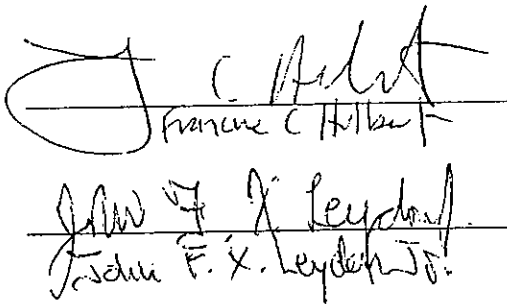 C
Francine C Hulbert
John F X Leyden Jr.
John F. X. Leyden Jr.